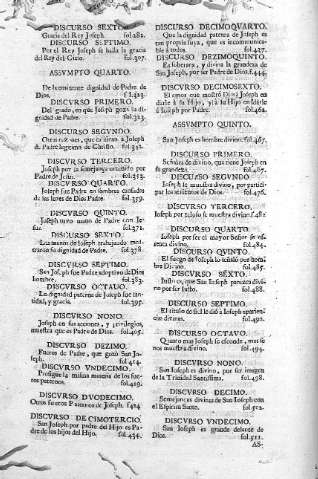 DISCURSO SEXTO.
Gracia del Rey Joseph. fol.282.
DISCURSO SEPTIMO.
Por el Rey Joseph se halla la gracia
del Rey del Cielo. fol.307.
ASSVMPTO QUARTO.
dignidad de Padre de
Dios. f.313.
DISCVRSO PRIMERO.
Del que Joseph goza la dig-
nidad de Padre. fol.313.
DISCVRSO SEGVNDO.
Joseph
de Christo. fol.341.
DISCVRSO TERCERO.
Joseph por la semejança
Padre de Jesus. fol.353.
DISCVRSO QUARTO.
Joseph fue Padre
de Padre Dios. fol.359.
DISCVRSO QUINTO.
Joseph tuvo mano de Padre con Je-
sus. fol.371.
DISCVRSO SEXTO.
Las manos de Joseph
su dignidad de Padre. fol.378.
DISCVRSO SEPTIMO.
San Joseph fue Padre adoptivo de Dios
hombre. fol.383.
DISCVRSO OCTAVO.
La dignidad paterna de Joseph fue
y gracia. fol.397.
DISCVRSO NONO.
Joseph en sus acciones, y privilegios,
muestra que es Padre de Dios. fol.407.
DISCVRSO DEZIMO.
de Padre, que gozó San Jo-
seph. fol.414.
DISCVRSO VNDECIMO.
Prosigue la misma materia de los fue-
ros paternos. fol.419.
DISCVRSO DVODECIMO.
Otros fueros Paternos de Joseph. f.424.
DISCVRSO DECIMOTERCIO.
San Joseph por padre del Hijo es Pa-
dre de los hijos del Hijo. fol.434.
DISCURSO DECIMOQUARTO.
Que la dignidad paterna de Joseph es
tan propria suya, que es incommunica-
ble à todos. fol.437.
DISCVRSO DEZIMOQUINTO.
Es soberana, y divina la grandeza de
San Joseph, por ser Padre de Dios. f.444.
DISCVRSO DECIMOSEXTO.
El amor que mostrò Dios à Joseph en
darle à su Hijo, y à la Hijo en darle
à Joseph por Padre. fol.464.
ASSVMPTO QUINTO.
San Joseph es hombre divino. fol.467.
DISCVRSO PRIMERO.
de divino, que tiene Joseph en
su grandeza. fol.467.
DISCVRSO SEGVNDO
Joseph se muestra divino, por partici-
par los de Dios. fol.476.
DISCVRSO TERCERO.
Joseph por zeloso se muestra divino. f.481.
DISCVRSO QUARTO.
Joseph por ser el mayor Señor
divino. fol.484.
DISCVRSO QUINTO.
El fuego de Joseph
fol.485.
DISCVRSO SEXTO.
que San Joseph parezca divi-
no por ser Justo. fol.488.
DISCVRSO SEPTIMO.
El titulo de fiel le diò à Joseph aparien-
cias divinas. fol.492.
DISCVRSO OCTAVO.
Quanto mas Joseph se esconde, mas se
nos muestra divino. fol.494.
DISCVRSO NONO.
San Joseph es divino, por ser imagen
de la Trinidad Santissima. fol.498.
DISCVRSO DECIMO.
Semejanças divinas de San Joseph con
el Espiritu Santo. fol.502.
DISCVRSO VNDECIMO.
San Joseph es grande delante de
Dios. fol.511.
AS-